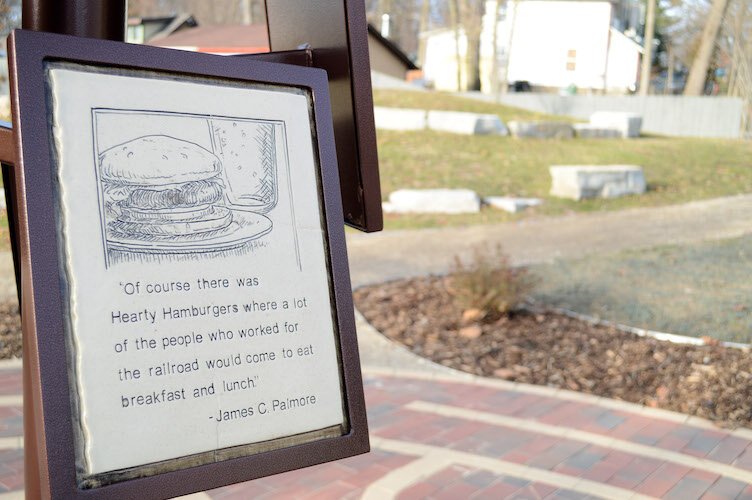 "Of course there was
Hearty Hamburgers where a lot
of the people who worked for
the railroad would come to eat
breakfast and lunch."
- James C. Palmore